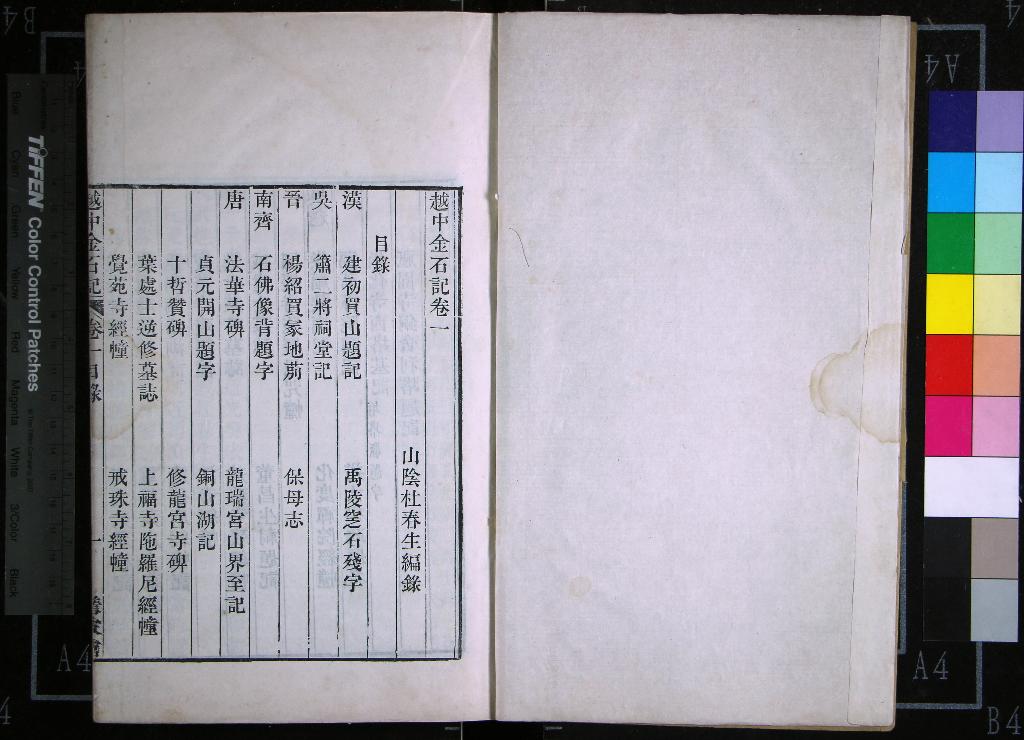 越中金石記卷一
山陰杜春生編錄
目錄
漢
建初買山題記
禹陵窆石殘字
吳
蕭二將祠堂記
晉
楊紹買冢地莂
保母志
南齊
石佛像背題字
唐
法華寺碑
龍瑞宮山界至記
貞元開山題字
銅山湖記
十哲贊碑
修龍宮寺碑
葉處士逆修墓誌
上福寺陁羅尼經幢
覺苑寺經幢
戒珠寺經幢
越中金石記 卷一目錄
一
TIFFEN Color Control Patches
Blue
Cyan
Green
Yellow
Red
Magenta
White
3/Color
Black
A4
A4
A4
B4
B4